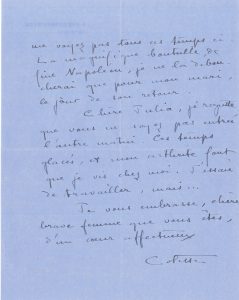 me voyez pas tous ces temps ci.
La magnifique bouteille de
fine Napoléon, je ne la débou-
cherai que pour mon mari,
le jour de son retour.
Chère Julia, je regrette
que vous ne soyez pas entrée
l'autre matin. Ces temps
glacés, et mon arthrite font
que je vis chez moi. J'essaie
de travailler, mais...
Je vous embrasse, chère
brave femme que vous êtes,
d'un cœur affectueux
Colette